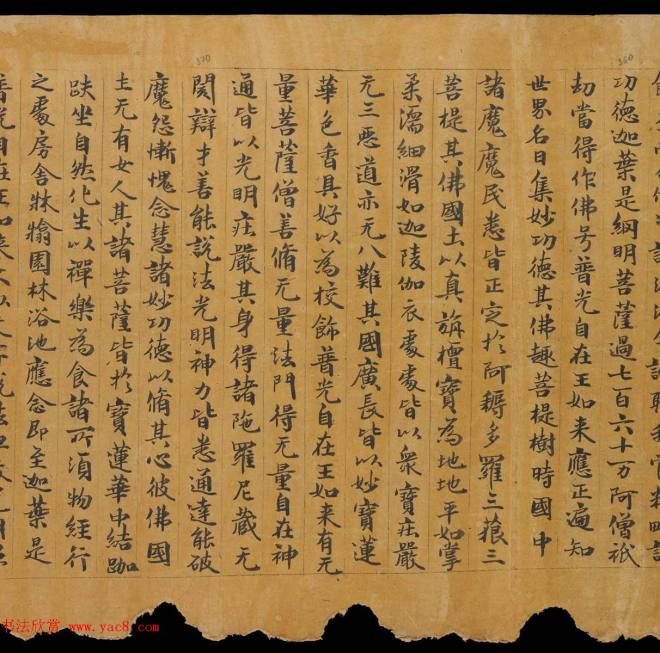 370
360
功德迦葉是網明菩薩過七百六十万阿僧祇
劫當得作佛号普光自在王如来應正遍知
世界名曰集妙功德其佛趣菩提樹時國中
諸魔魔民悉皆正定於阿耨多羅三藐三
菩提其佛國土以真旃檀寶為地地平如掌
柔濡細滑如迦陵伽衣處處皆以衆寶莊嚴
无三惡道亦无八難其國廣長皆以妙寶蓮
華色香具好以為挍飾普光自在王如来有无
量菩薩僧善脩无量法門得无量自在神
通皆以光明莊嚴其身得諸陁羅尼藏无
閡辯才善能說法光明神力皆悉通達能破
魔怨慚愧念慧諸妙功德以脩其心彼佛國
土无有女人其諸菩薩皆於寶蓮華中結跏
趺坐自然化生以禪樂為食諸所須物經行
之處房舍牀榻園林浴池應念即至迦葉是
书法欣赏 www.yac8.com